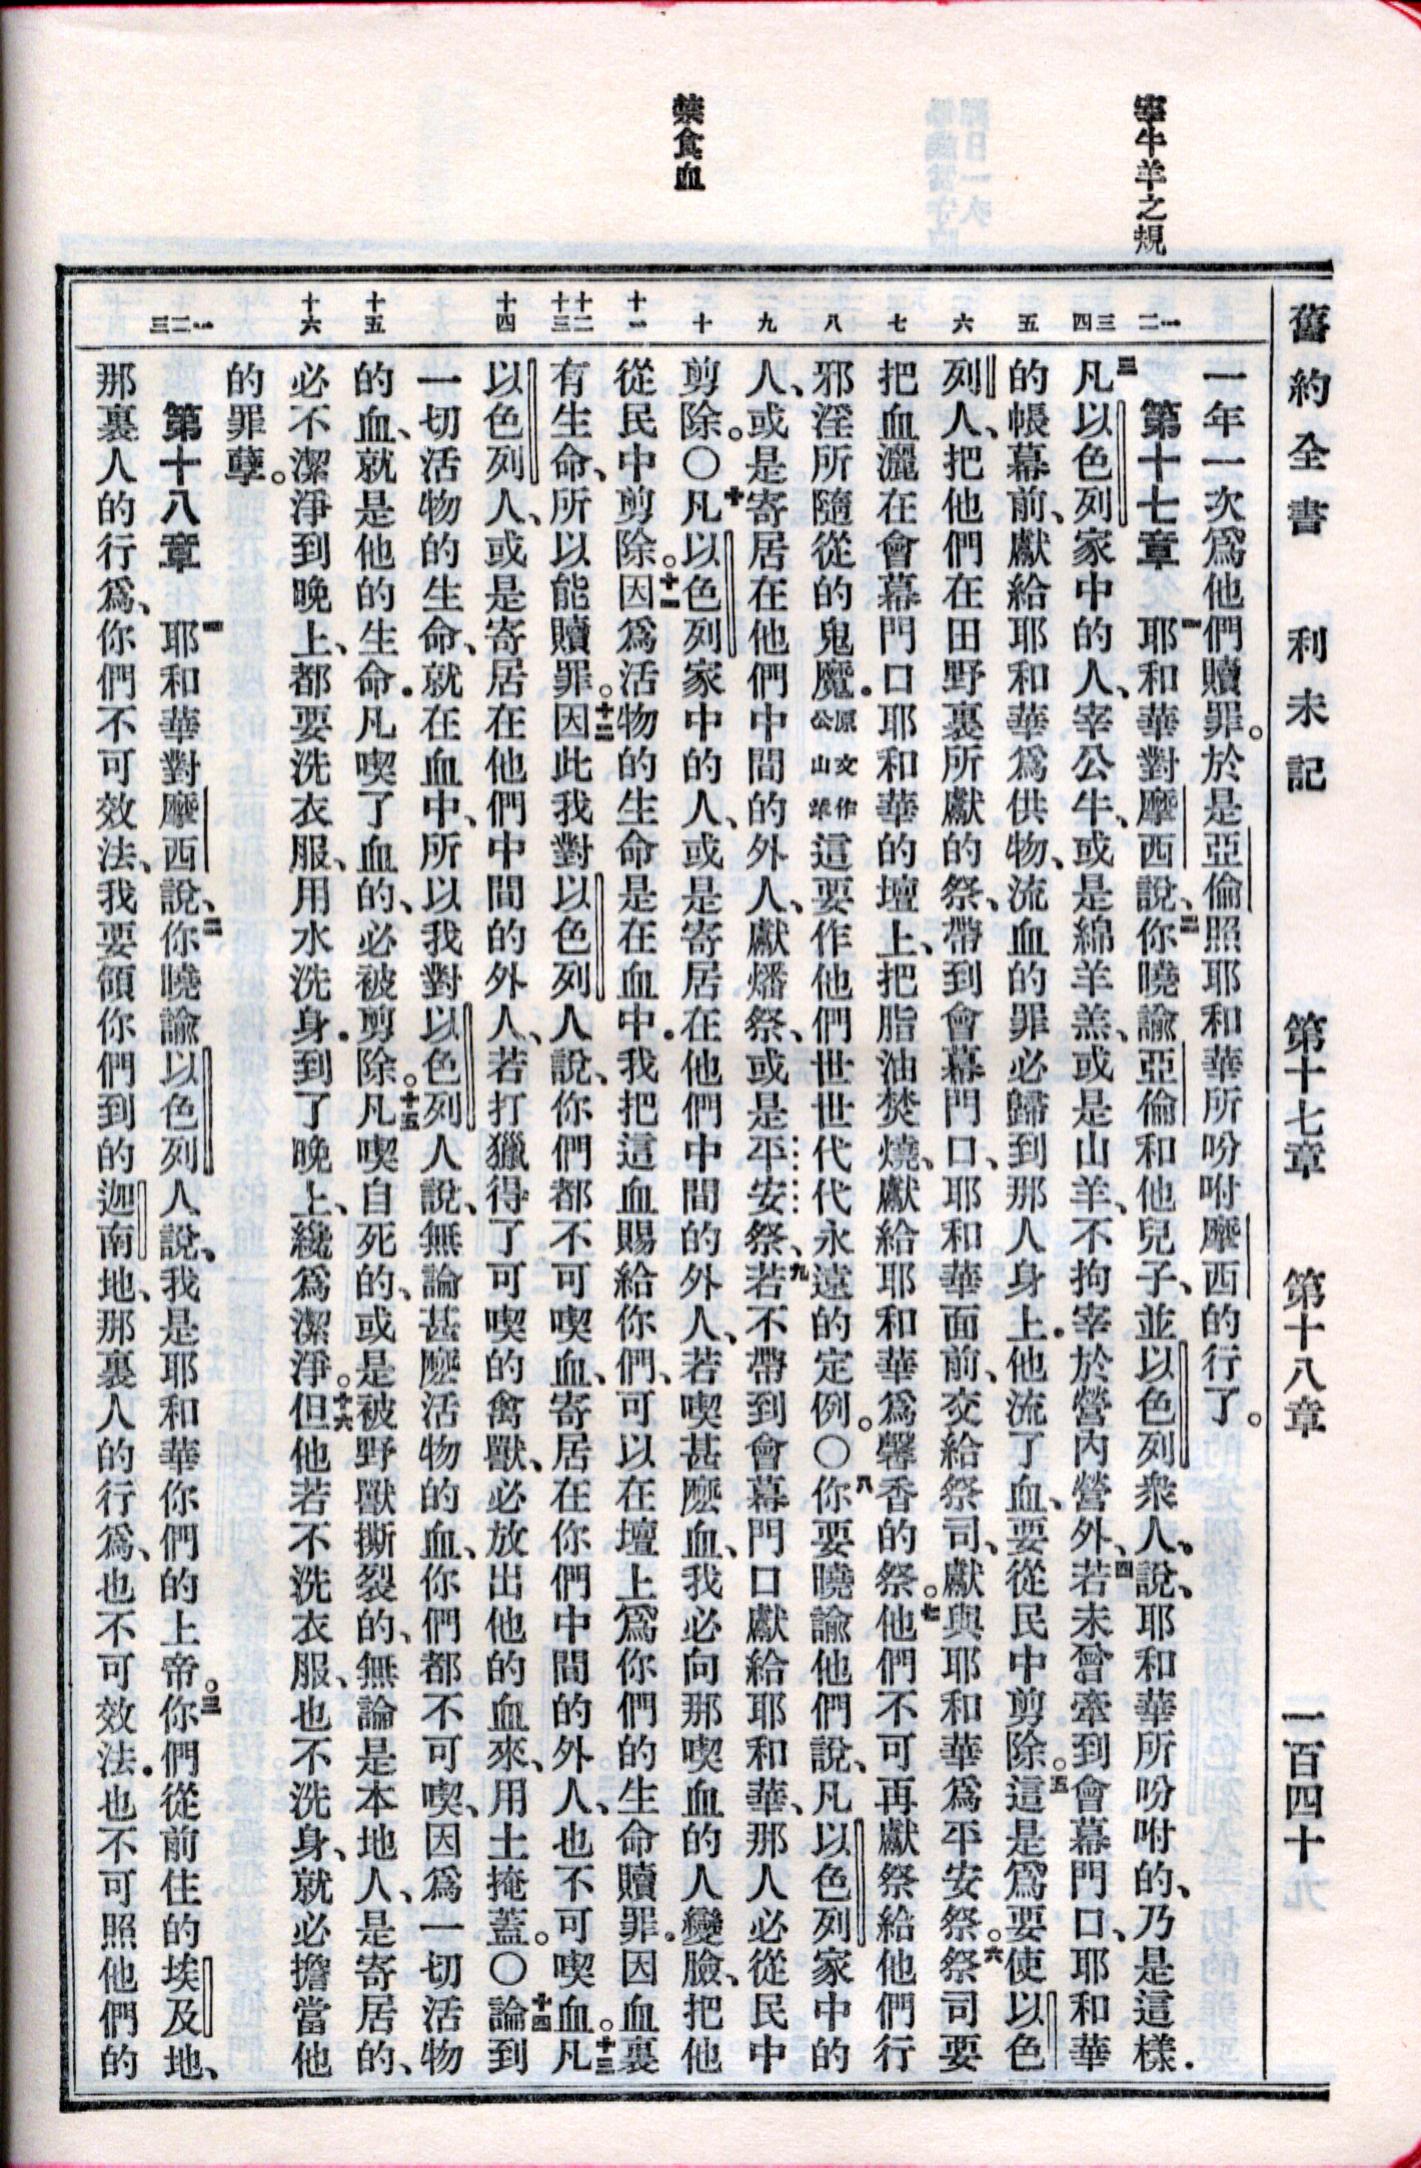 宰牛羊之規
禁食血
舊約全書 利未記 第十七章 第十八章 一百四十
一 二 三 四 五 六 七 八 九 十 十一 十二 十三 十四 十五 十六 一 二 三
一年一次爲他們贖罪。於是亞倫照耶和華所吩咐摩西的行了。
第十七章 一耶和華對摩西說、二你曉諭亞倫和他兒子、並以色列衆人、說、耶和華所吩咐的、乃是這樣．
三凡以色列家中的人、宰公牛、或是綿羊羔、或是山羊、不拘宰於營內營外、四若未曾牽到會幕門口、耶和華
的帳幕前、獻給耶和華爲供物、流血的罪必歸到那人身上．他流了血、要從民中剪除。五這是爲要使以色
列人、把他們在田野裏所獻的祭、帶到會幕門口、耶和華面前、交給祭司、獻與耶和華爲平安祭。六祭司要
把血灑在會幕門口耶和華的壇上、把脂油焚燒、獻給耶和華爲馨香的祭。七他們不可再獻祭給他們行
邪淫所隨從的鬼魔．原文作公山羊這要作他們世世代代永遠的定例。〇八你要曉諭他們說、凡以色列家中的
人、或是寄居在他們中間的外人、獻燔祭、或是平安祭、九若不帶到會幕門口獻給耶和華、那人必從民中
剪除。〇十凡以色列家中的人、或是寄居在他們中間的外人、若喫甚麽血、我必向那喫血的人變臉、把他
從民中剪除。十一因爲活物的生命是在血中．我把這血賜給你們、可以在壇上爲你們的生命贖罪．因血裏
有生命、所以能贖罪。十二因此我對以色列人說、你們都不可喫血、寄居在你們中間的外人、也不可喫血。十三凡
以色列人、或是寄居在他們中間的外人、若打獵得了可喫的禽獸、必放出他的血來、用土掩蓋。〇十四論到
一切活物的生命、就在血中、所以我對以色列人說、無論甚麽活物的血、你們都不可喫、因爲一切活物
的血、就是他的生命．凡喫了血的、必被剪除。十五凡喫自死的、或是被野獸撕裂的、無論是本地人、是寄居的、
必不潔淨到晚上、都要洗衣服、用水洗身．到了晚上、纔爲潔淨。十六但他若不洗衣服、也不洗身、就必擔當他
的罪孽。
第十八章 一耶和華對摩西說、二你曉諭以色列人說、我是耶和華你們的上帝。三你們從前住的埃及地、
那裏人的行爲、你們不可效法、我要領你們到的迦南地、那裏人的行爲、也不可效法．也不可照他們的